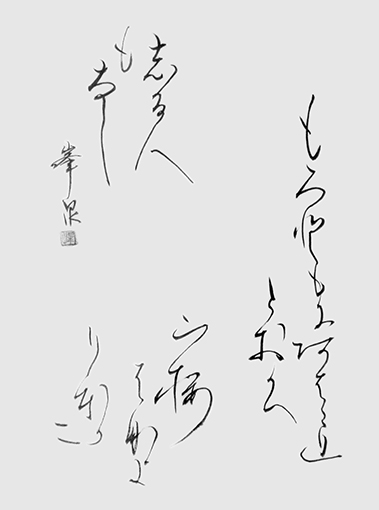 もろともにあはれ
とおもへ
山桜
はなよ
りほかに
志る人
も
なし
峯泉